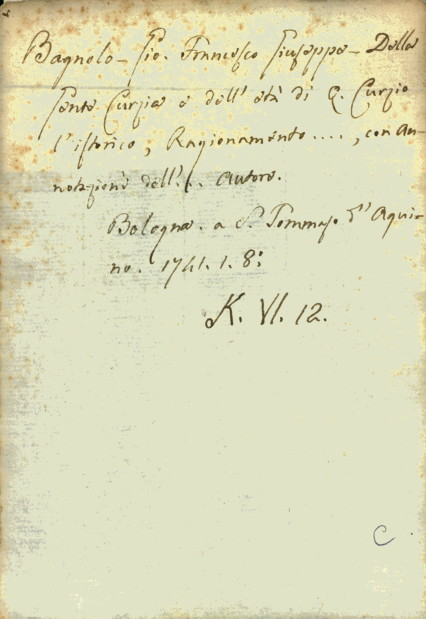 Bagnolo - Gio. Francesco Giuseppe - Della
Gente Curzia e dell' età di Q. Curzio
l'istorico, Ragionamento ...., con an-
notazioni dell'... autore.
Bologna. a S. Tommaso d'Aqui-
no. 1741. 1. 8:
K. VI. 12.
C